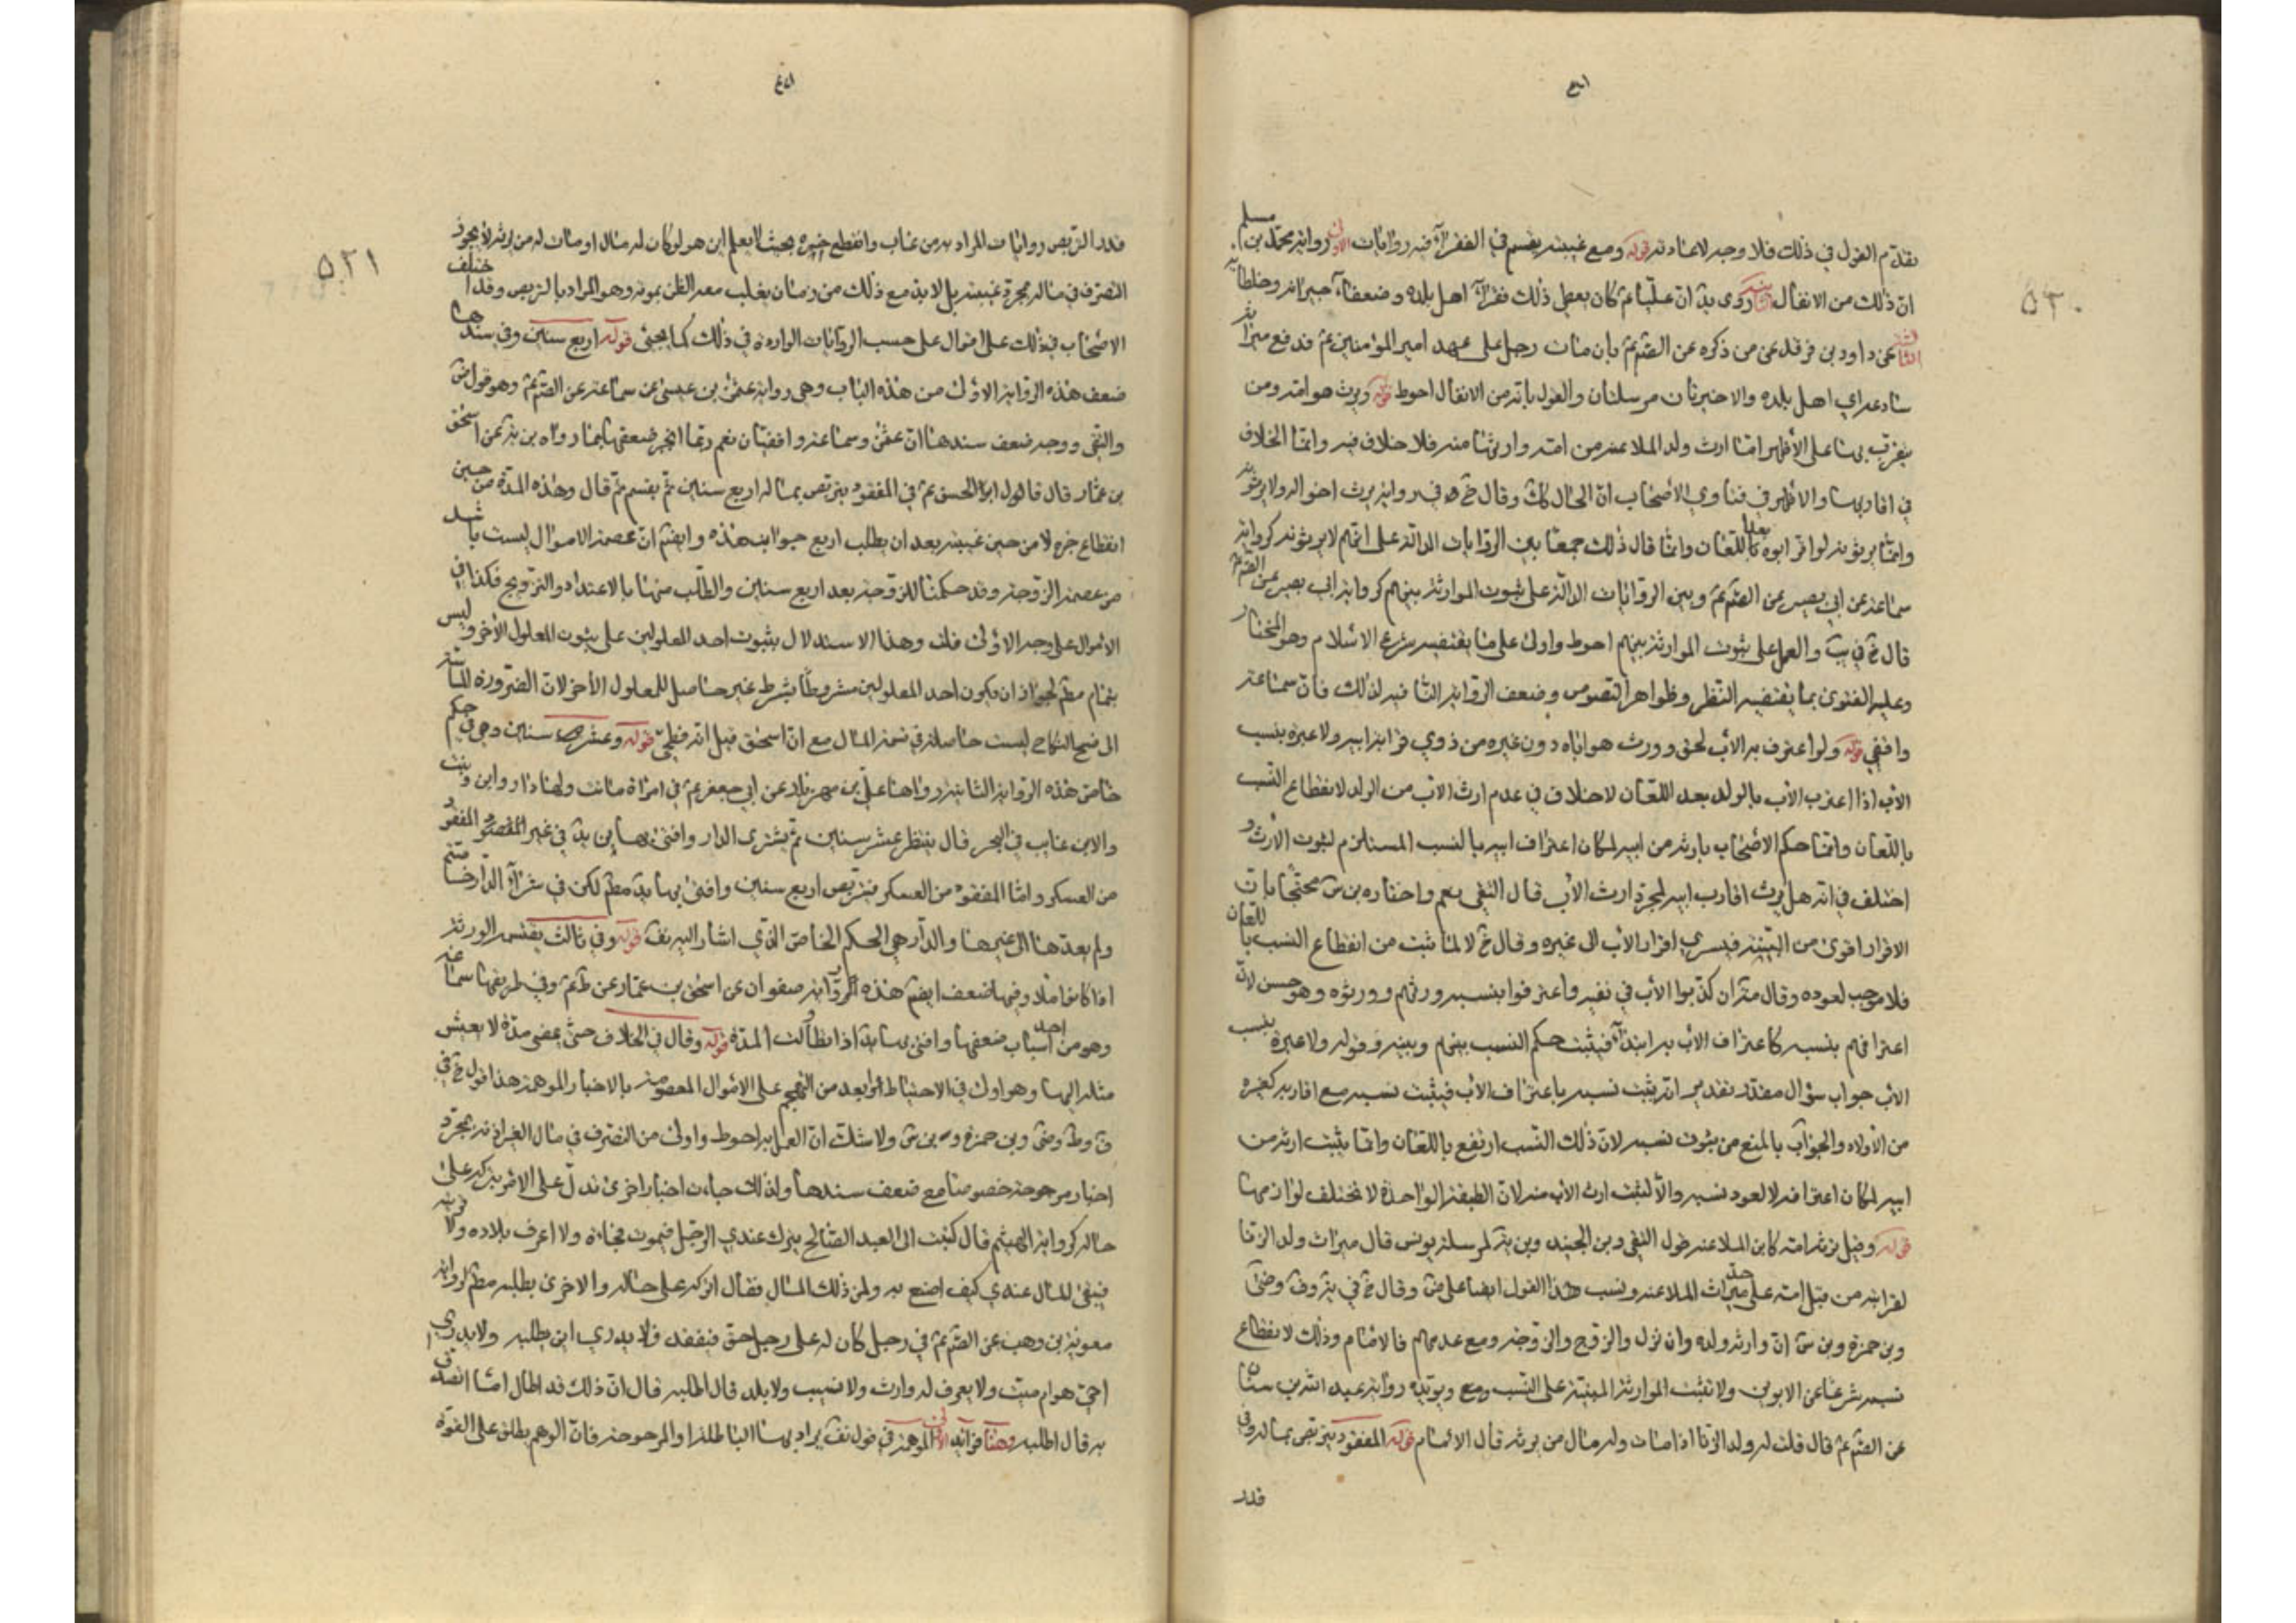 تقدّم القول في ذلك فلا وجه لاعادته قوله ومع غيبته يقسم في الفقرآء فيه روايات الاولى رواية محمّد بن مسلم
انّ ذلك من الانفال الثانية روى يه انّ عليّا ع كان يعطى ذلك فقرآء اهل بلده وضعفاء جيرانه وخلطائه
الثالثة عن داود بن فرقد عمّن ذكره عن الصّم ع بان مات رجل على عهد امير المؤمنين ع فدفع ميراثه
الى اهل بلده والاخيرتان مرسلتان والقول بانّه من الانفال احوط قوله ويرث هو امّه ومن
يتقرّب بها على الأظهر امّا ارث ولد الملاعنة من امّه وارثها منه فلا خلاف فيه وانّما الخلاف
في اقاربها والاظهر في فتاوي الأصحاب انّ الحال كك وقال خ ره في رواية يرث اخواله ولا يرثونه
وانّما يرثونه لو اقرّ ابوه بعد اللّعان وانّما قال ذلك جمعا بين الرّوايات الدالّة على انّهم لا يرثونه كرواية
سماعة عن ابي بصير عن الصّم ع وبين الرّوايات الدالّة على ثبوت الموارثة بينهم كرواية ابي بصير عن الصّم ع
قال خ في يب والعمل على ثبوت الموارثة بينهم احوط واولى على ما يقتضيه شرع الاسلام وهو المختار
وعليه الفتوى بما يقتضيه النّظر وظواهر النّصوص وضعف الرّواية الثانية لذلك فانّ سماعة
واقفي قوله ولو اعترف به الأب لحق وورث هو اباه دون غيره من ذوي قرابة ابيه ولا عبرة بنسب
الأب اذا اعترف الأب بالولد بعد اللّعان لا خلاف في عدم ارث الأب من الولد لانقطاع النّسب
باللّعان وانّما حكم الاصحاب بارثه من ابيه لمكان اعتراف ابيه بالنسب المستلزم لثبوت الأرث و
اختلف في انّه هل يرث اقارب ابيه لمجرّد ارث الأب قال التقى نعم واختاره بن س محتجّا بانّ
الاقرار اقوى من البيّنة فيسري اقرار الأب الى غيره وقال خ لا لما ثبت من انقطاع النسب باللّعان
فلا موجب لعوده وقال متران كذّبوا الأب في نفيه واعترفوا بنسبه ورثهم وورثوه وهو حسن لانّ
اعترافهم بنسبه كاعتراف الأب به ابتدآء فيثبت حكم النسب بينهم وبينه وقوله ولا عبرة بنسب
الأب جواب سؤال مقدّر تقديره انّه يثبت نسبه باعتراف الأب فيثبت نسبه مع اقاربه كغيره
من الأولاد والجواب بالمنع من ثبوت نسبه لانّ ذلك النّسب ارتفع باللّعان وانّما يثبت ارثه من
ابيه لمكان اعترافه لا لعود نسبه والّا لثبت ارث الأب منه لانّ الطبقة الواحدة لا تختلف لوازمها
قوله وقيل يرثه امّه كابن الملاعنة قول التقى وبن الجنيد وبن يه لمرسلة يونس قال ميراث ولد الزنا
لقرابته من قبل امّه على حدّ ميراث الملاعنة ونسب هذا القول ايضا على ض وقال خ في يه وف وضى
وبن حمزة وبن س انّ وارثه ولده وان نزل والزوج والزوجة ومع عدمهم فالامام وذلك لانقطاع
نسبه شرعا عن الابوين ولا تثبت الموارثة المبنيّة على النّسب ومع ويؤيّده رواية عبد الله بن سنان
عن الصّم ع قال قلت له ولد الزنا اذا مات وله مال من يرثه قال الامام قوله المفقود يتربّص بماله وفي
قدر
٥٢٠
قدر التربّص روايات المراد به من غاب وانقطع خبره بحيث لا يعلم اين هو لو كان له مال او مات له من يرثه لا يجوز
التصرّف في ماله بمجرّد غيبته بل لا بدّ مع ذلك من زمان يغلب معه الظن بموته وهو المراد بالتربّص وقد اختلف
الاصحاب في ذلك على اقوال على حسب الروايات الواردة في ذلك كما يجئ قوله اربع سنين وفي سندها
ضعف هذه الرّواية الاولى من هذه الباب وهي رواية عثمن بن عيسى عن سماعة عن الصّم ع وهو قول ض
والتقى ووجه ضعف سندها انّ عثمن وسماعة واقفيّان نعم ربّما انجبر ضعفها بما رواه بن يه عن اسحق
بن عمّار قال قال لي ابو الحسن ع في المفقود يتربّص بماله اربع سنين ثمّ يقسم ثمّ قال وهذه المدّة من حين
انقطاع خبره لا من حين غيبته بعد ان يطلب اربع جوانب هذه وايضم انّ عصمة الاموال ليست باشد
من عصمة الزوجة وقد حكمنا للزوجة بعد اربع سنين والطّلب منها بالاعتداد والتزويج فكذا في
الأموال على وجه الاولى قلت وهذا الاستدلال بثبوت احد المعلولين على ثبوت المعلول الأخر وليس
بتمام مطم لجواز ان يكون احد المعلولين مشروطا بشرط غير حاصل للمعلول الأخر لانّ الضرورة الماسّة
الى فسخ النكاح ليست حاصلة في قسمة المال مع انّ اسحق قيل انّه فطحي قوله وعشر سنين وهي في حكم
خاص هذه الرواية الثانية رواها علي بن مهزيار عن ابي جعفر ع في امراة ماتت ولها دار وابن وبنت
والابن غايب في البحر قال ينتظر عشر سنين ثمّ يشترى الدار وافتى بها بن يه في غير المفقود
من العسكر وامّا المفقود من العسكر فيتربّص اربع سنين وافتى بها يه مطم لكن في شرآء الدّار خاصّة
ولم يعدّها الى غيرها والدّار هي الحكم الخاصّ الذي اشار اليه نف قوله وفي ثالث يقتسمه الورثة
اذا كانوا ملّا وفيها ضعف ايضم هذه الرّواية صفوان عن اسحق بن عمّار عن ظ ع وفي طريقها سماعة
وهو من احد اسباب ضعفها وافتى بها يه اذا تطاولت المدّة قوله وقال في الخلاف حتّى يمضى مدّة لا يعيش
مثله اليها وهو اولى في الاحتياط وابعد من التهجّم على الاموال المعصومة بالاخبار الموهمة هذا قول خ في
ف وط وضى وبن حمزة وبن س ولا شك انّ العمل به احوط واولى من التصرّف في مال الغير اذنه بمجرّد
اخبار مرجوحة خصوصا مع ضعف سندها ولذلك جاءت اخبار اخرى تدلّ على الامر بتركه على
حاله كرواية الهيثم قال كتبت الى العبد الصّالح ينزل عندي الرجل فيموت فجاءة ولا اعرف بلاده ولا ورثته
فيبقى المال عندي كيف اصنع به ولمن ذلك المال فقال اتركه على حاله والاخرى يطلبه مطم لرواية
معوية بن وهب عن الصّم ع في رجل كان له على رجل حق ففقد فلا يدري اين يطلبه ولا يدري
احيّ هو ام ميّت ولا يعرف له وارث ولا نسيب ولا بلد قال اطلبه قال انّ ذلك قد طال امّا اتصدّق
به قال اطلبه وهنا فوائد الاولى الموهمة في قول نف يراد بها الباطلة او المرجوحة فانّ الوهم يطلق على القوّة
٥٢١